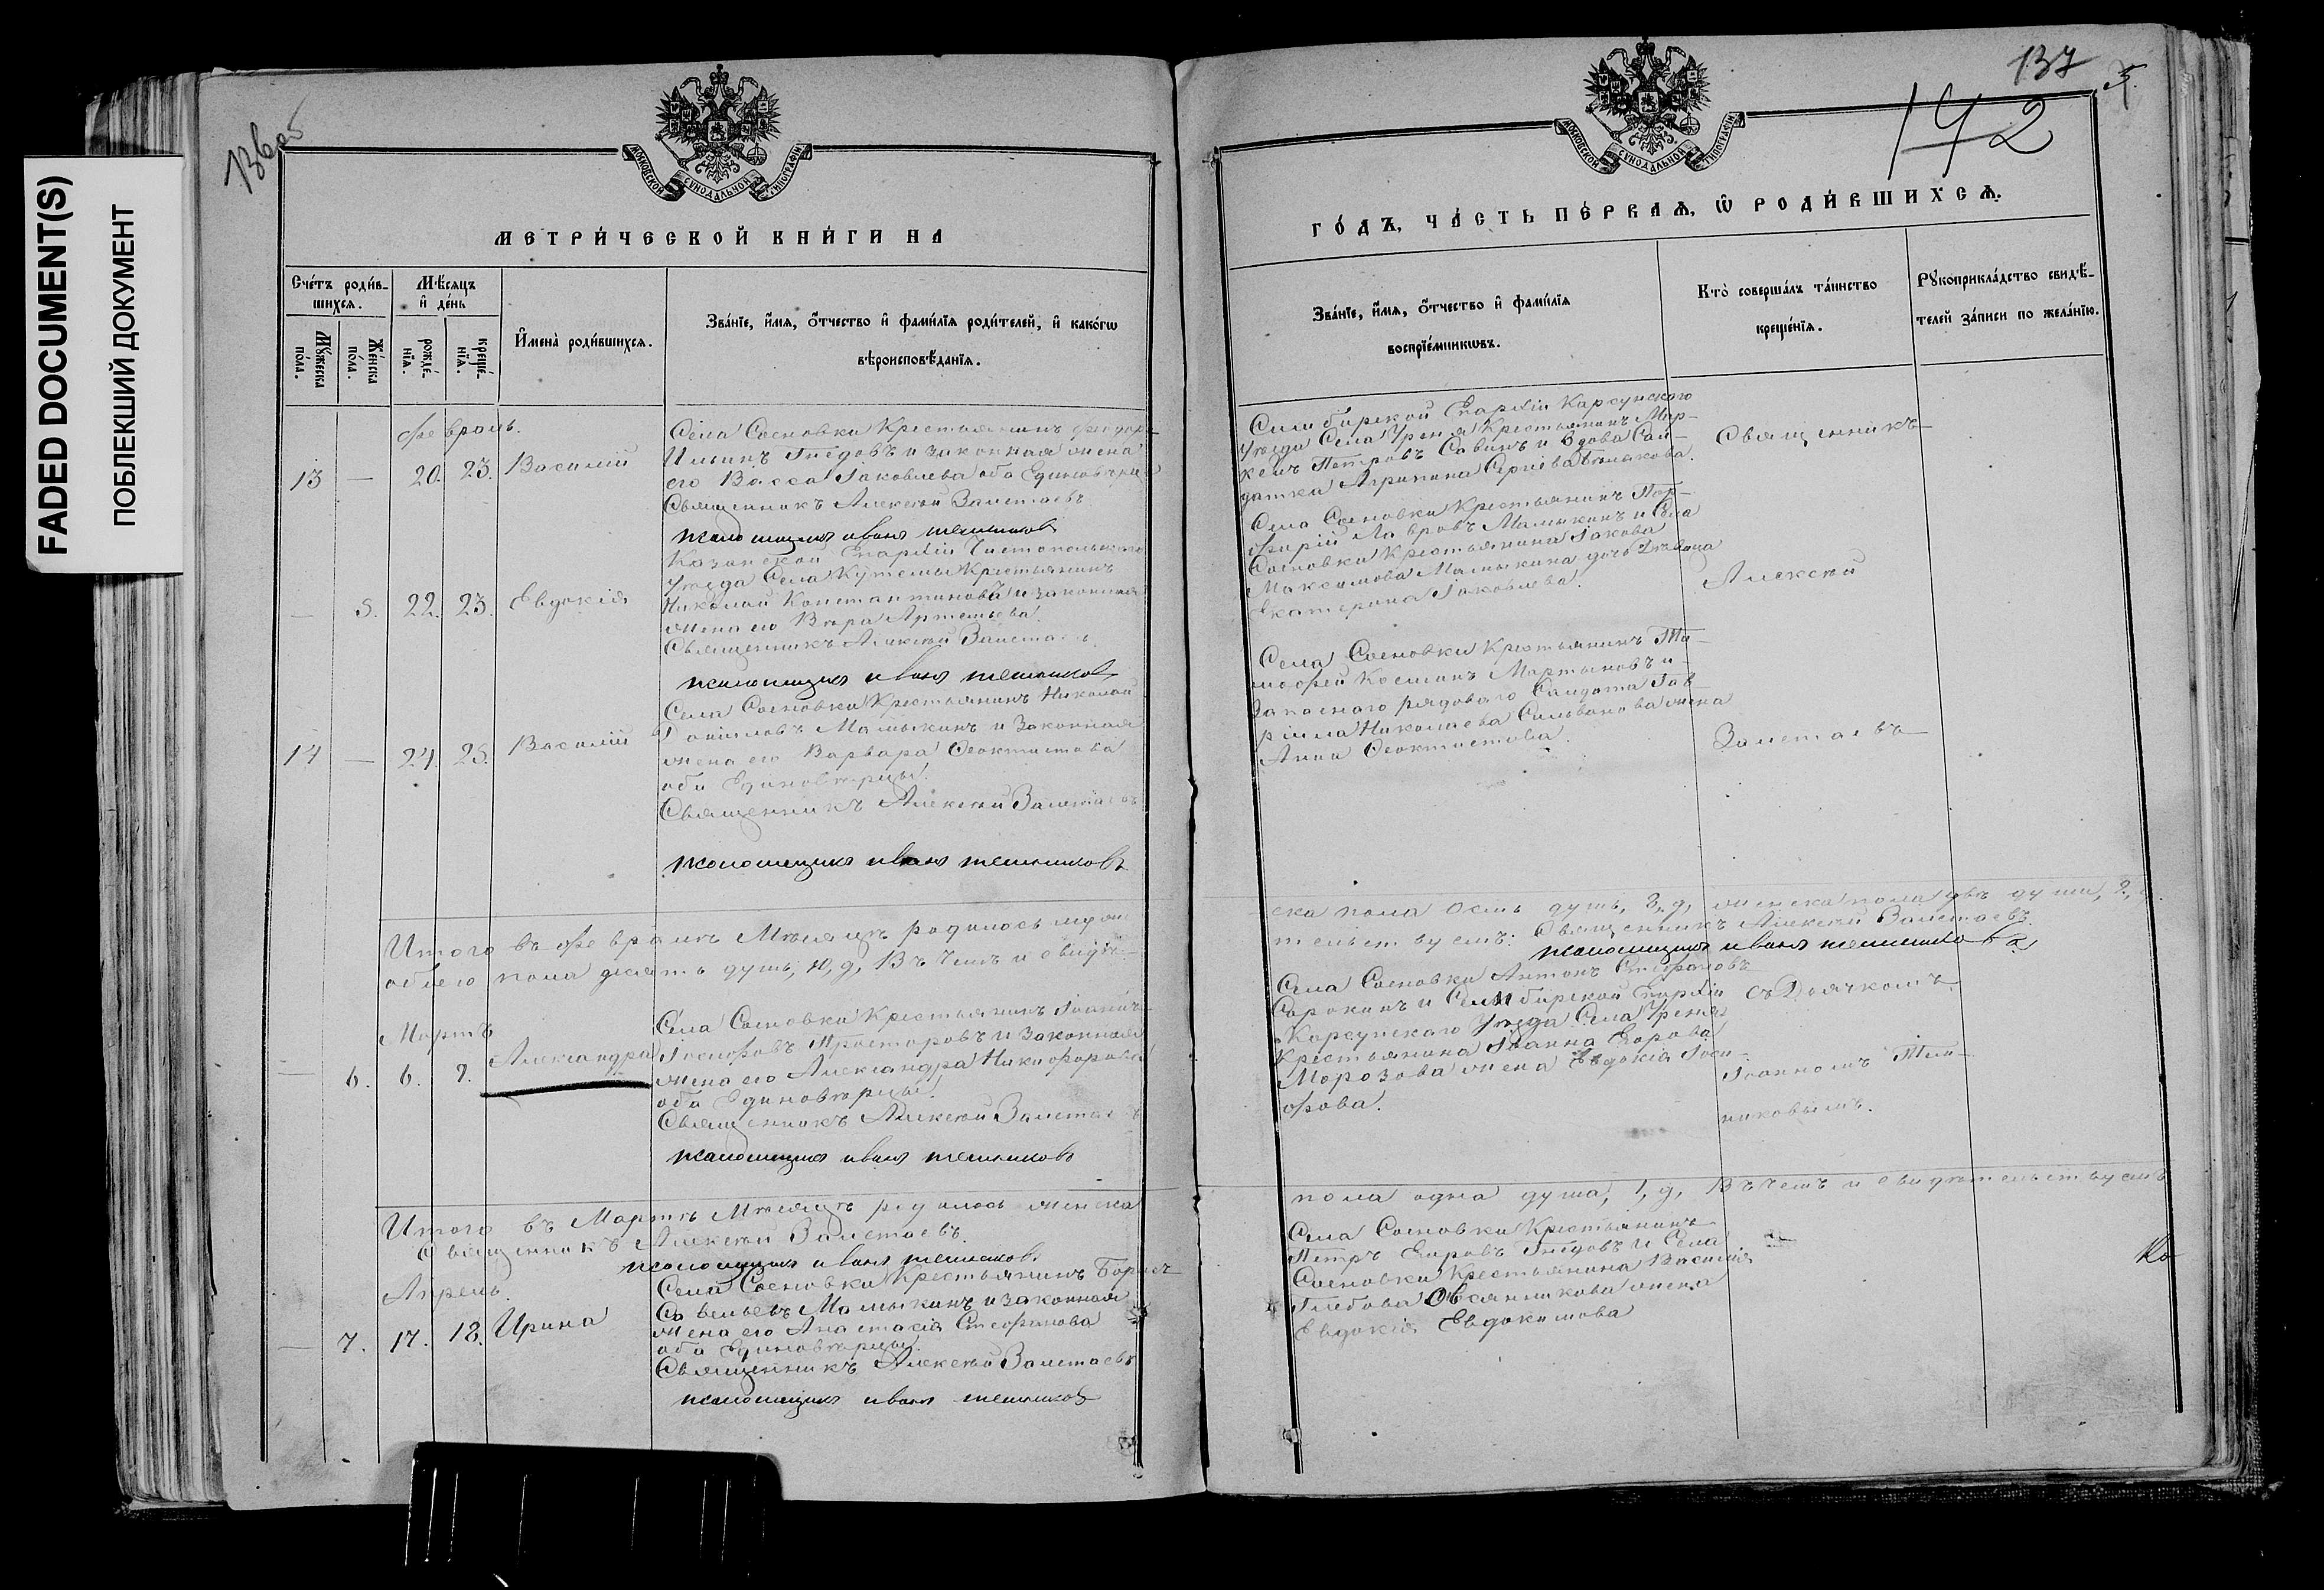 FADED DOCUMENT(S)
ПОБЛЕКШИЙ ДОКУМЕНТ
136об
МОСКОВСКОЙ СѴНОДАЛЬНОЙ ТИПОГРАФІИ
МЕТРИ́ЧЕСКОЙ КНИ́ГИ НА
Сче́тъ роди́в-
шихсѧ.
Мѣ́сѧцъ
и҆ де́нь
Мꙋ́жеска
по́ла.
Же́нска
по́ла.
рожде́-
нїѧ.
креще́-
нїѧ.
И҆мена̀ роди́вшихсѧ.
Зва́нїе, и҆́мѧ, ѻ҆́тчество и҆ фами́лїѧ роди́телей, и҆ како́гѡ
вѣроисповѣ́данїѧ.
февраль.
13 — 20. 23. Василій
Села Сосновки Крестьянинъ Феодор-
Ильинъ Гнѣдовъ и законная жена
его Васса Іаковлева оба Единовѣрцы
Священникъ Алексѣй Залетаевъ
псаломщикъ иванъ темников
— 5. 22. 23. Евдокія
Казанской Епархіи Чистопольскаго
Уѣзда Села Кутемы Крестьянинъ
Николай Константиновъ и законная
жена его Вѣра Артемьева.
Священникъ Алексѣй Залетаевъ
псаломщикъ иванъ темников
14 — 24. 25. Василій
Села Сосновки Крестьянинъ Николай
Даніиловъ Малыкинъ и Законная
жена его Варвара Ѳеоктистова
оба Единовѣрцы.
Священникъ Алексѣй Залетаевъ
псаломщикъ иванъ темниковъ
Итого въ февралѣ Мѣсяцѣ родилось муже
обоего пола десять душъ, 10, д, Въ чемъ и свидѣ-
Мартъ
— 6. 6. 7. Александра
Села Сосновки Крестьянинъ Іоаннъ
Іосифовъ Просторовъ и Законная
жена его Александра Никифорова
оба Единовѣрцы.
Священникъ Алексѣй Залетаевъ
псаломщикъ иванъ темниковъ
Итого въ Мартѣ Мѣсяцѣ родилось женска
Священникъ Алексѣй Залетаевъ.
псаломщикъ иванъ темников.
Апрель.
— 7. 17. 18. Ирина
Села Сосновки Крестьянинъ Борисъ
Савельевъ Малыкинъ и законная
жена его Анастасія Стефанова
оба Единовѣрцы.
Священникъ Алексѣй Залетаевъ
псаломщикъ иванъ темников
137
142
МОСКОВСКОЙ СѴНОДАЛЬНОЙ ТИПОГРАФІИ
ГО́ДЪ, ЧА́СТЬ ПЕ́РВАѦ, Ѽ РОДИ́ВШИХСѦ.
Зва́нїе, и҆́мѧ, ѻ҆́тчество и҆ фами́лїѧ
воспрїе́мникѡвъ.
Кто̀ соверша́лъ та́инство
креще́нїѧ.
Рꙋкоприкла́дство свидѣ́-
телей за́писи по жела́нїю.
Симбирской Епархіи Карсунского
Уѣзда Села Уреня Крестьянинъ Мар-
келъ Петровъ Савинъ и вдова Сал-
датка Агрипина Сергіева
Села Сосновки Крестьянинъ Пор-
фирій Лавровъ Малыкинъ и Села
Сосновки Крестьянина Іакова
Максимова Малыкина дочь Дѣвица
Екатерина Іаковлева.
Села Сосновки Крестьянинъ Ти-
мофей Косминъ Мартыновъ и
Запаснаго рядового Салдата Гав
ріила Николаева Сильванова жена
Анна Ѳеоктистова.
Священникъ
Алексѣй
Залетаевъ
ска пола Осмь душъ, 8, д, женска пола двѣ души, 2,
тельствуемъ: Священникъ Алексѣй Залетаевъ
псаломщикъ иванъ темниковъ
Села Сосновки Антонъ Стефановъ
Сорокинъ и Симбирской Епархіи
Карсунскаго Уѣзда Села Уреня
Крестьянина Іоанна Егорова
Морозова жена Евдокія Іоси-
фова.
съ Дьячкомъ
Іоанномъ Тем-
никовымъ.
пола одна душа, 1, д, Въ чемъ и свидѣтельствуемъ
Села Сосновки Крестьянинъ
Петръ Егоровъ Гнѣдовъ и Села
Сосновки Крестьянина Василія
Глебова Овсянникова жена
Евдокія Евдокимова